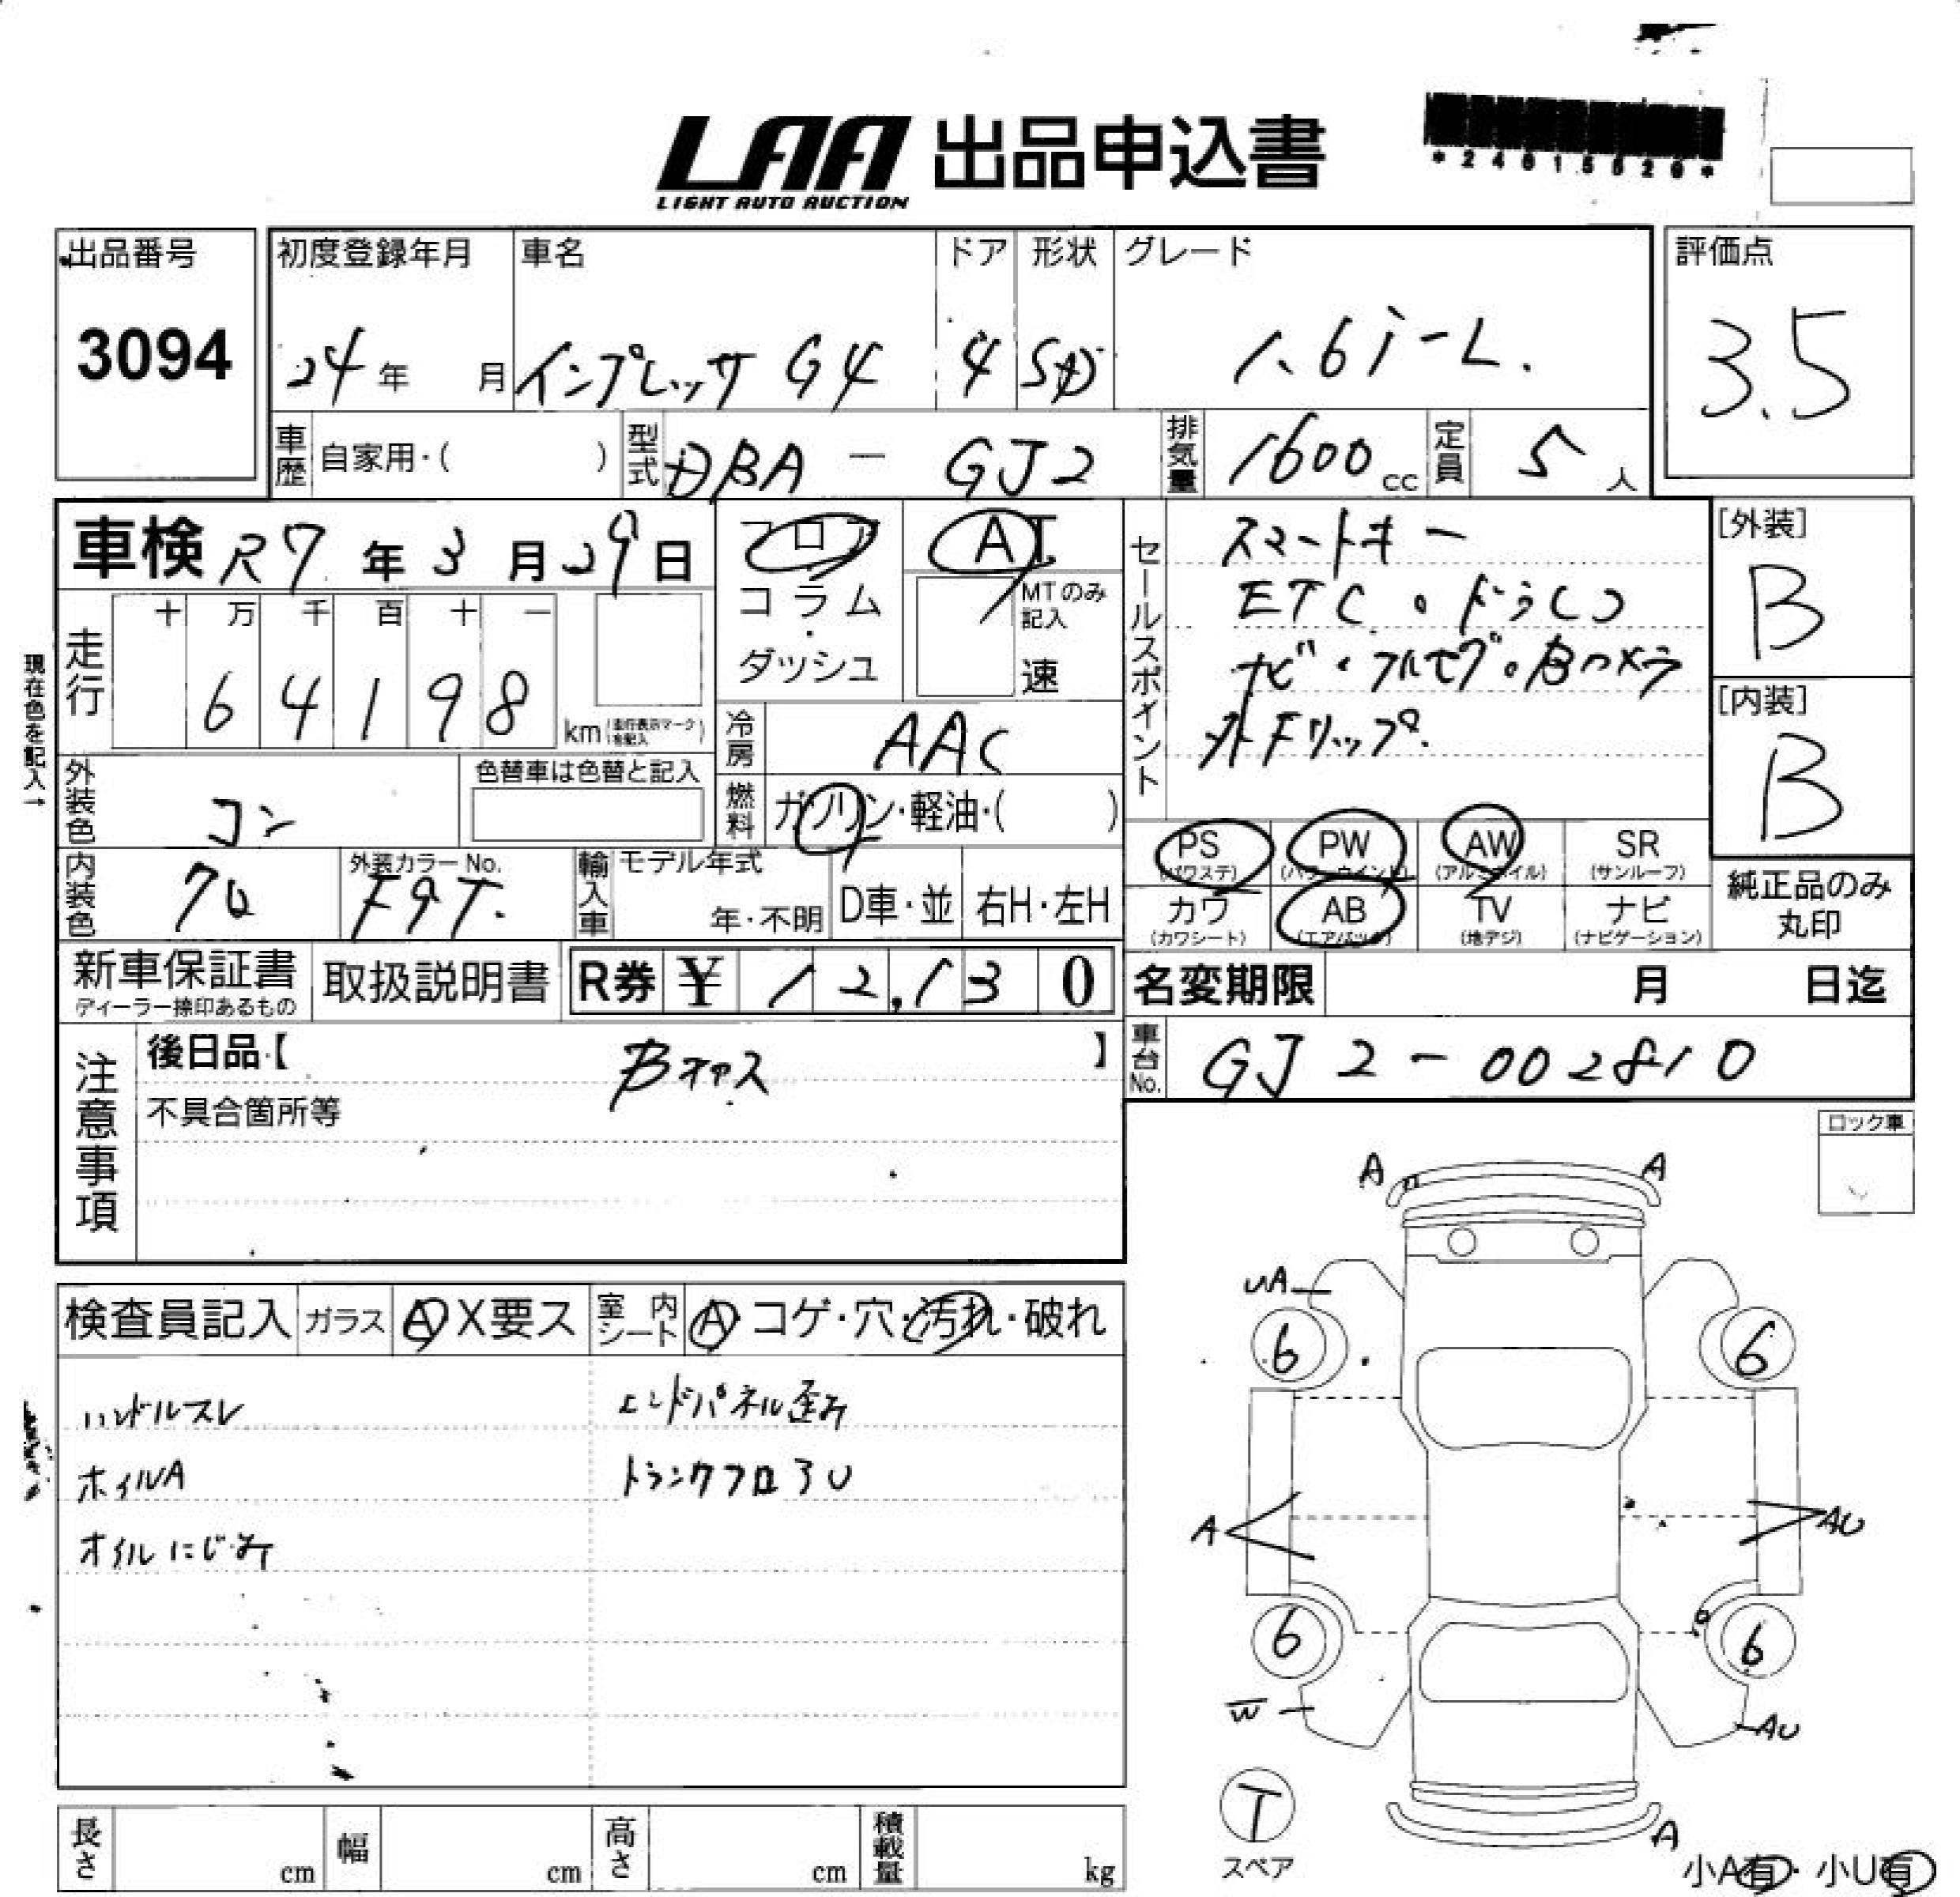 LAA 出品申込書
LIGHT AUTO AUCTION
出品番号
3094
初度登録年月
24年 月
車名
インプレッサ G4
ドア
4
形状
SD
グレード
1.6i-L.
評価点
3.5
車歴 自家用・( )
型式 DBA - GJ2
排気量 1600cc
定員 5人
車検 R7年3月29日
フロア
コラム
・
ダッシュ
AT
MTのみ
記入
速
現在色を記入→
走行
十 万 千 百 十 一
6 4 1 9 8
km(走行表示マークを記入)
冷房 AAC
燃料 ガソリン・軽油・( )
外装色 コン
色替車は色替と記入
内装色 クロ
外装カラーNo.
F9T.
輸入車 モデル年式
年・不明
D車・並
右H・左H
セールスポイント
スマートキー
ETC・ドラレコ
ナビ・フルセグ・Bカメラ
外Fリップ
[外装]
B
[内装]
B
PS PW AW SR
(パワステ) (パワーウインド) (アルミホイル) (サンルーフ)
カワ AB TV ナビ
(カワシート) (エアバック) (地デジ) (ナビゲーション)
純正品のみ
丸印
新車保証書
ディーラー捺印あるもの
取扱説明書
R券 ¥ 12,130
名変期限 月 日迄
車台No. GJ2-002810
注意事項
後日品【 】
不具合箇所等
ロック車
検査員記入 ガラス A X要ス
室内シート A・コゲ・穴・汚れ・破れ
ハンドルスレ
ホイルA
オイルにじみ
エンドパネル歪み
トランクフロアU
A A
UA
6 6
A AU
6 6
W AU
T
スペア
A
小A有・小U有
長さ cm
幅 cm
高さ cm
積載量 kg